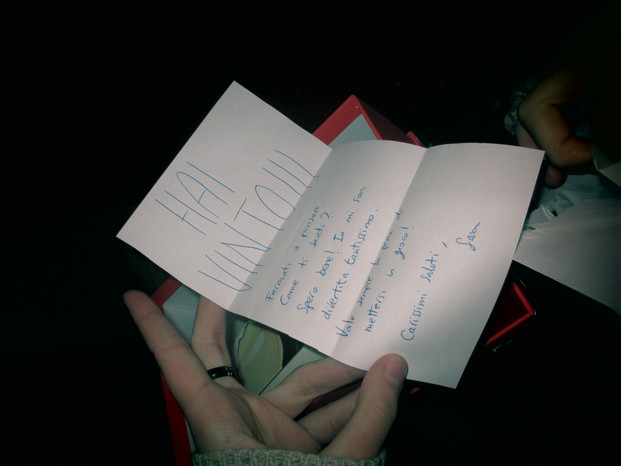 HAI
VINTO!!!
Fermati a pensare
Come ti senti?
Spero bene! Io mi son
divertita tantissimo.
Vale sempre la pena di
mettersi in gioco!
Carissimi saluti,